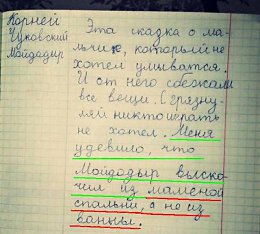 Корней
Чуковский
Мойдодыр
Эта сказка о ма-
льчике, который не
хотел умыватся.
И от него сбежали
все вещи. С грязну-
лей никто играть
не хотел. Меня
удевило, что
Мойдодыр выско-
чил из маменой
спальни, а не из
ванны.